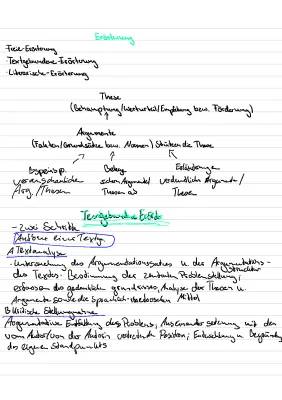 Erörterung
Freie-Erörterung
·Textgebundene-Erörterung
·Literarische-Erörterung
These
(Behauptung/Werturteil/Empfehlung bzw. Forderung)
Argumente
(Fakten/Grundsätze bzw. Normen) Stützen die These
Beispiele Beleg Erläuterungen
veranschaulichen sichern Argumente/ verdeutlichen Argumente/
Arg./Thesen Thesen ab Thesen
Textgebundene Erört.
- zwei Schritte
Aufbau eines Textes
A Textanalyse
·Untersuchung des Argumentationsansatzes u der Argumentations-
struktur
des Textes. Bestimmung der zentralen Problemstellung;
erfassen des gedanklich Analyse der Thesen u
Argumente sowie die sprachlich-rhetorischen Mittel
B Kritische Stellungnahme
Argumentative Entfaltung des Problems; Auseinandersetzung mit der
vom Autor/von der Autorin vertretenen Position; Entwicklung u Begründung
des eigenen Standpunkts.